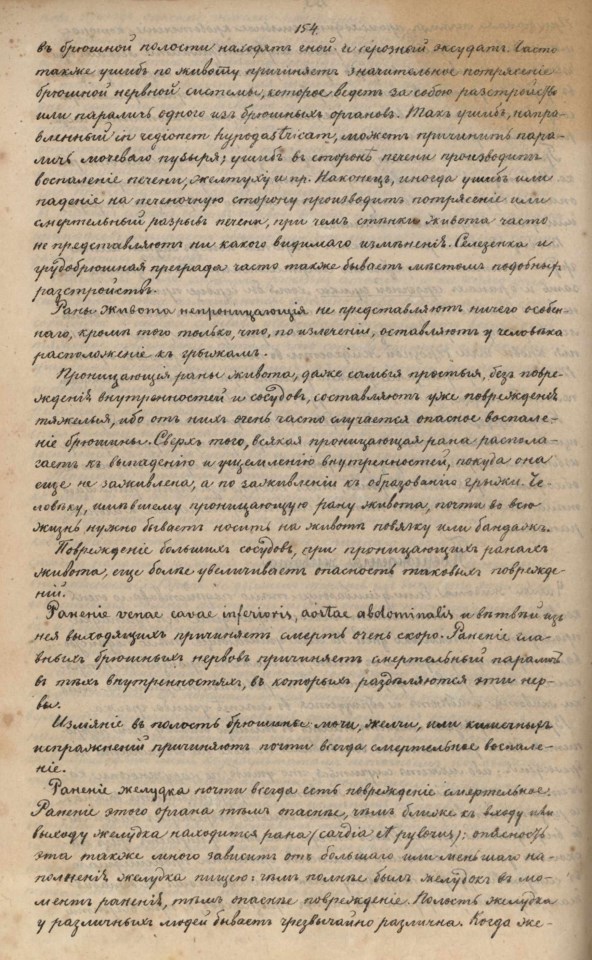 154.
въ брюшной полости находятъ гной и серозный эксудатъ. Часто
также ушибъ по животу причиняетъ значительное потрясеніе
брюшной нервной системы, которое ведетъ за собою разстройство
или параличъ одного изъ брюшныхъ органовъ. Такъ ушибъ, напра-
вленный in regionem hypogastricam, можетъ причинить пара-
личъ мочеваго пузыря; ушибъ въ сторонѣ печени производитъ
воспаленіе печени, желтуху и пр. Наконецъ, иногда ушибъ или
паденіе на печеночную сторону производитъ потрясеніе или
смертельный разрывъ печени, при чемъ стѣнки живота часто
не представляютъ ни какого видимаго измѣненія. Селезенка и
грудобрюшная преграда часто также бываетъ мѣстомъ подобныхъ
разстройствъ.
Раны живота непроницающія не представляютъ ничего особен-
наго, кромѣ того только, что, по излеченіи, оставляютъ у человѣка
расположеніе къ грыжамъ.
Проницающія раны живота, даже самыя простыя, безъ повре-
жденія внутренностей и сосудовъ, составляютъ уже поврежденія
тяжелыя, ибо отъ нихъ очень часто случается опасное воспале-
ніе брюшины. Сверхъ того, всякая проницающая рана распола-
гаетъ къ выпаденію и ущемленію внутренностей, покуда она
еще не заживлена, а по заживленіи къ образованію грыжи. Че-
ловѣку, имѣвшему проницающую рану живота, почти во всю
жизнь нужно бываетъ носить на животѣ повязку или бандажъ.
Поврежденіе большихъ сосудовъ, при проницающихъ ранахъ
живота, еще болѣе увеличиваетъ опасность таковыхъ поврежде-
ній.
Раненіе venae cavae inferioris, aortae abdominalis и вѣтвей изъ
нея выходящихъ причиняетъ смерть очень скоро. Раненіе гла-
вныхъ брюшныхъ нервовъ причиняетъ смертельный параличъ
въ тѣхъ внутренностяхъ, въ которыхъ раздѣляются эти нер-
вы.
Изліяніе въ полость брюшины мочи, желчи, или кишечныхъ
испражненій причиняютъ почти всегда смертельное воспале-
ніе.
Раненіе желудка почти всегда есть поврежденіе смертельное.
Раненіе этого органа тѣмъ опаснѣе, чѣмъ ближе къ входу или
выходу желудка находится рана (cardia et pylorus); опасность
эта также много зависитъ отъ большаго или меньшаго на-
полненія желудка пищею: чѣмъ полнѣе былъ желудокъ въ мо-
ментъ раненія, тѣмъ опаснѣе поврежденіе. Полость желудка
у различныхъ людей бываетъ чрезвычайно различна. Когда же-